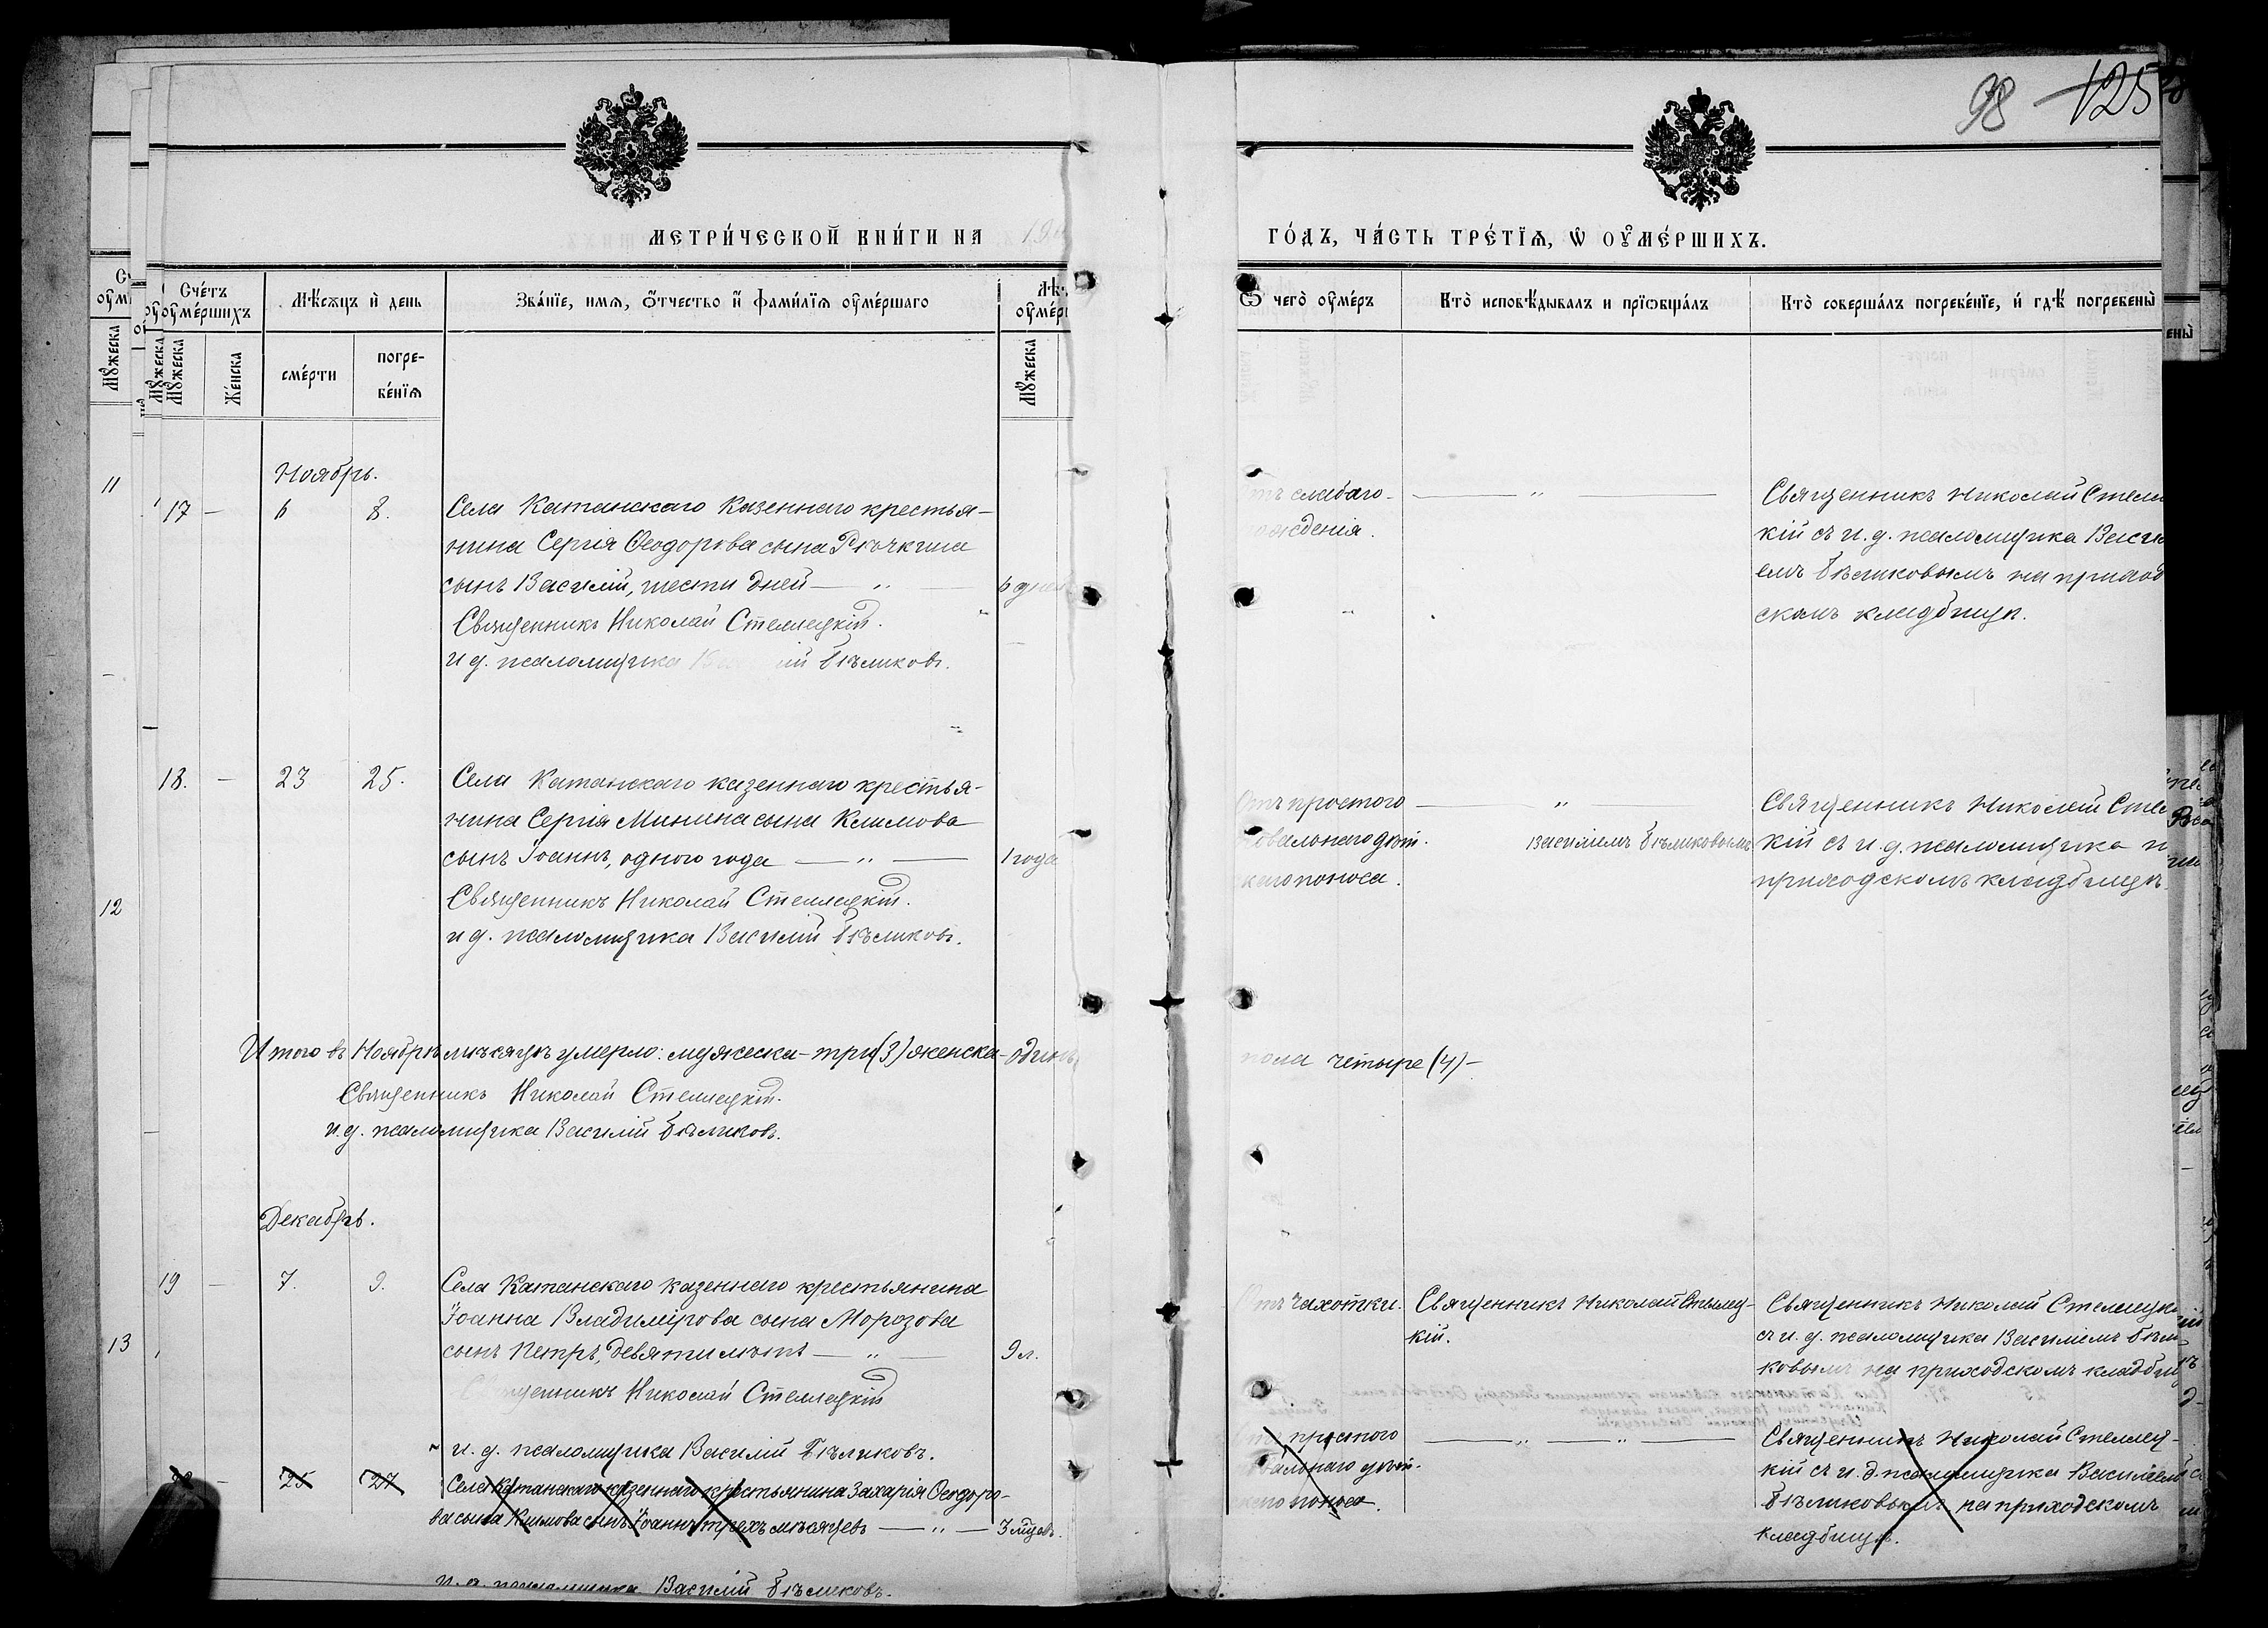 98 125
МЕТРИ́ЧЕСКОЙ КНИ́ГИ НА
ГО́ДЪ, ЧА́СТЬ ТРЕ́ТЇѦ, Ѡ҆ ОУ҆МЕ́РШИХЪ.
Сче́тъ оу҆ме́ршихъ
Мѣ́сѧцъ и҆ день
Зва́нїе, имѧ, ѻ҆́тчество и҆ фами́лїѧ оу҆ме́ршагѡ
Ѿ чего̀ оу҆ме́ръ
Кто̀ исповѣ́дывалъ и прїѡбща́лъ
Кто̀ соверша́лъ погребе́нїе, и҆ гдѣ̀ погребены̀
Мꙋ́жеска
Же́нска
сме́рти
погре-
бе́нїѧ
Мꙋ́жеска
Ноябрь.
17 — 6 8. Села Катанскаго казеннаго крестья-
нина Сергія Ѳеодорова сына Рючкина
сынъ Василій, шести дней — " — 6 дней
Священникъ Николай Стеллецкій.
и д. псаломщика Бѣликовъ.
слабаго — " —
рожденія.
Священникъ Николай Стелле
кій съ и. д. псаломщика Васил
емъ Бѣликовымъ на приход
скомъ кладбищѣ.
18. — 23 25. Села Катанскаго казеннаго крестья-
нина Сергія Минина сына Климова
сынъ Іоаннъ, одного года — " — 1 года
Священникъ Николай Стеллецкій.
и д. псаломщика Василій Бѣликовъ.
Отъ простого — " —
повальнаго дѣт.
скаго поноса.
Василіемъ Бѣликовымъ
Священникъ Николай Стел
кій съ и. д. псаломщика н
приходскомъ кладбищѣ
Итого въ Ноябрѣ мѣсяцѣ умерло: мужеска — три (3) женска — одинъ
пола четыре (4) —
Священникъ Николай Стеллецкій.
и. д. псаломщика Василій Бѣликовъ.
Декабрь.
19 — 7. 9. Села Катанскаго казеннаго крестьянина
Іоанна Владимірова сына Морозова
сынъ Петръ, девяти лѣтъ — " — 9 л.
Священникъ Николай Стеллецкій
и. д. псаломщика Василій Бѣликовъ.
Отъ чахотки.
Священникъ Николай Стеллец-
кій.
Священникъ Николай Стеллецкі
съ и. д. псаломщика Василіемъ Бѣли
ковымъ на приходскомъ кладбищ
— 25 27 Села Катанскаго казеннаго крестьянина Захарія Ѳеодоро-
ва сына Климова сынъ Іоаннъ трехъ мѣсяцевъ — " — 3 мѣсц.
простого — " — " —
повальнаго дѣт.
скаго поноса.
Священникъ Николай Стеллец-
кій съ и. д. псаломщика Василіемъ
Бѣликовымъ на приходскомъ
кладбищѣ.
и. д. псаломщика Василій Бѣликовъ.
11
12
13